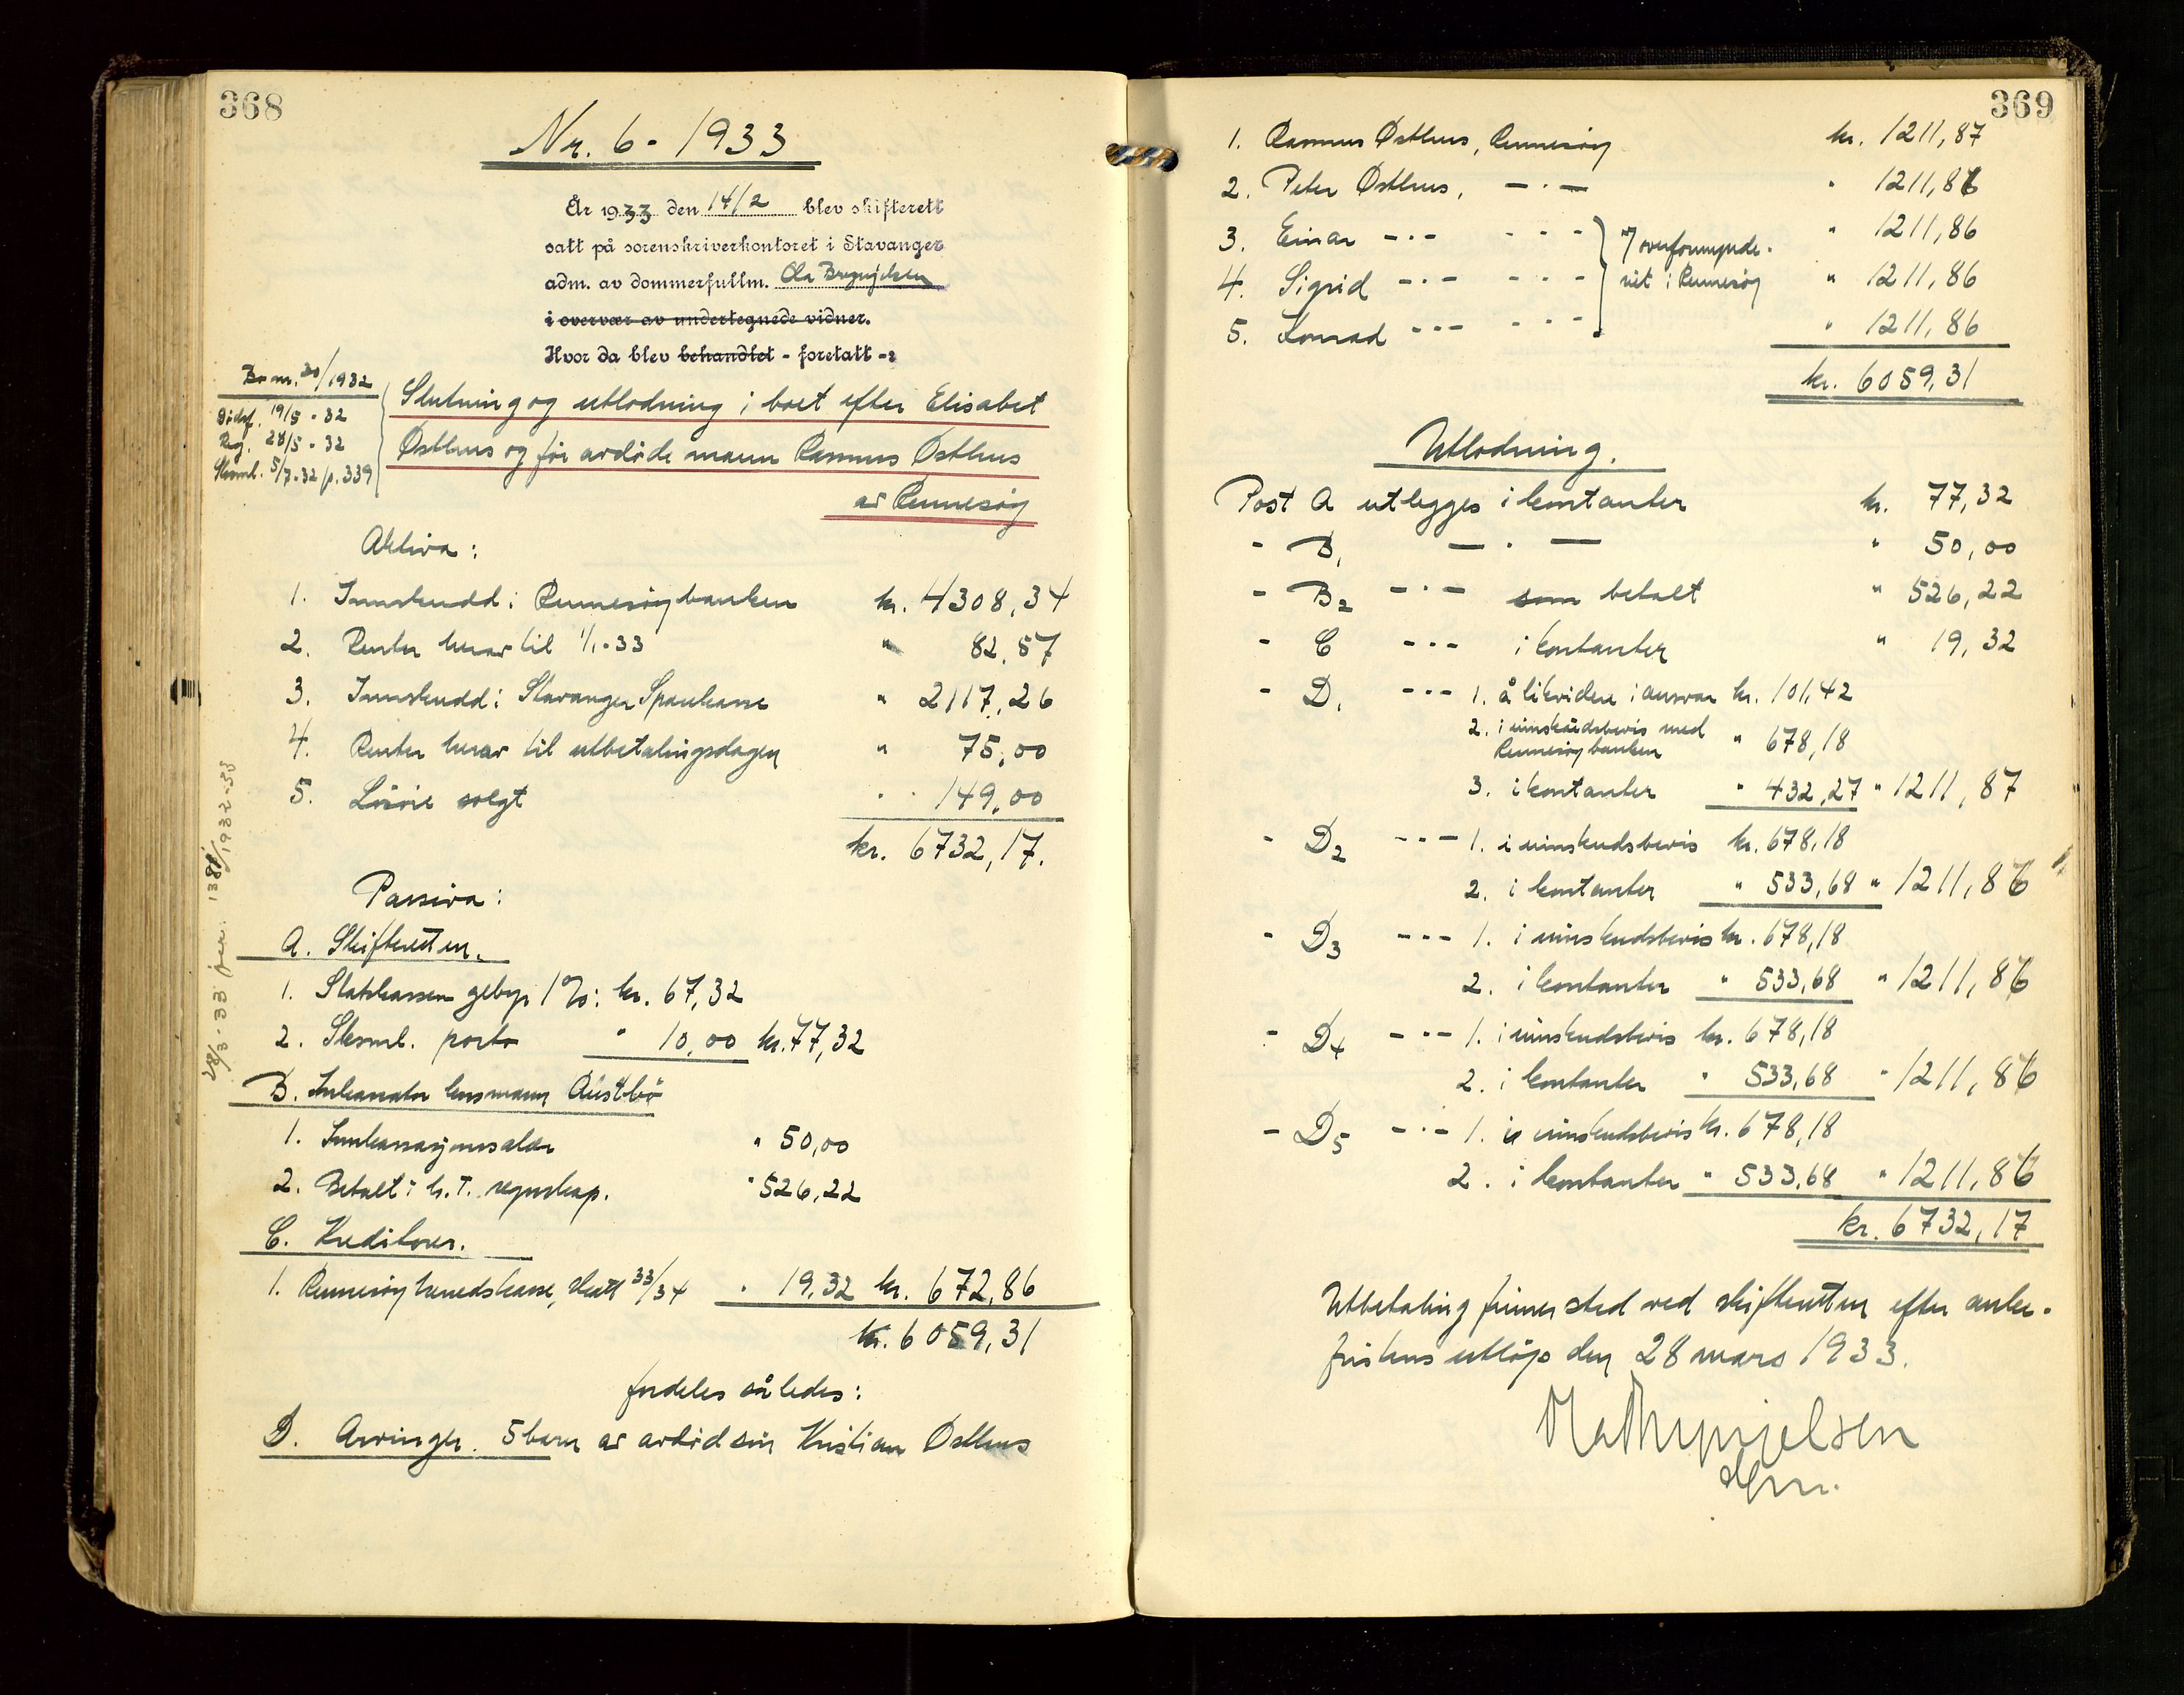 368
Nr. 6 - 1933
År 1933 den 14/2 blev skifterett
satt på sorenskriverkontoret i Stavanger
adm. av dommerfullm. Ola Brynjelsen
i overvær av undertegnede vidner.
Hvor da blev behandlet - foretatt -:
Bo nr. 20/1932
Dødsf. 19/5 - 32
Reg. 28/5 - 32
Sksml. 5/7-32 p. 339
Slutning og utlodning i boet efter Elisabet
Østhus og før avdøde mann Rasmus Østhus
av Rennesøy
Aktiva:
1. Innskudd i Rennesøybanken kr. 4308,34
2. Renter herav til 1/1-33 " 82,57
3. Innskudd i Stavanger Sparekasse " 2117,26
4. Renter herav til utbetalingsdagen " 75,00
5. Løsøre solgt " 149,00
kr. 6732,17.
Passiva:
A. Skifteretten.
1. Statskassen gebyr 1%: kr. 67,32
2. Sksml. porto " 10,00 kr. 77,32
B. Inkassator lensmann Austbø
1. Innkassasjonssalær " 50,00
2. Betalt i h.t. regnskap. " 526,22
C. Kreditorer.
1. Rennesøy herredskasse, skatt 33/34 " 19,32 kr. 672,86
kr. 6059,31
fordeles således:
D. Arvinger. 5 barn av avdød søn Kristian Østhus
28/3-33 1932-33
369
1. Rasmus Østhus, Rennesøy kr. 1211,87
2. Peter Østhus, -"- " 1211,86
3. Einar -"- -"- } overformynde- " 1211,86
4. Sigrid -"- -"- riet i Rennesøy " 1211,86
5. Konrad -"- -"- " 1211,86
kr. 6059,31
Utlodning.
Post A utlegges i kontanter kr. 77,32
- B1 -"- " 50,00
- B2 -"- som betalt " 526,22
- C -"- i kontanter " 19,32
- D1 -"- 1. å likvidere i ansvar kr. 101,42
2. i innskudsbevis med
Rennesøybanken " 678,18
3. i kontanter " 432,27 " 1211,87
- D2 -"- 1. i innskudsbevis kr. 678,18
2. i kontanter " 533,68 " 1211,86
- D3 -"- 1. i innskudsbevis kr. 678,18
2. i kontanter " 533,68 " 1211,86
- D4 -"- 1. i innskudsbevis kr. 678,18
2. i kontanter " 533,68 " 1211,86
- D5 -"- 1. i innskudsbevis kr. 678,18
2. i kontanter " 533,68 " 1211,86
kr. 6732,17
Utbetaling finner sted ved skifteretten efter anke-
fristens utløp den 28 mars 1933.
Ola Brynjelsen
dfm.